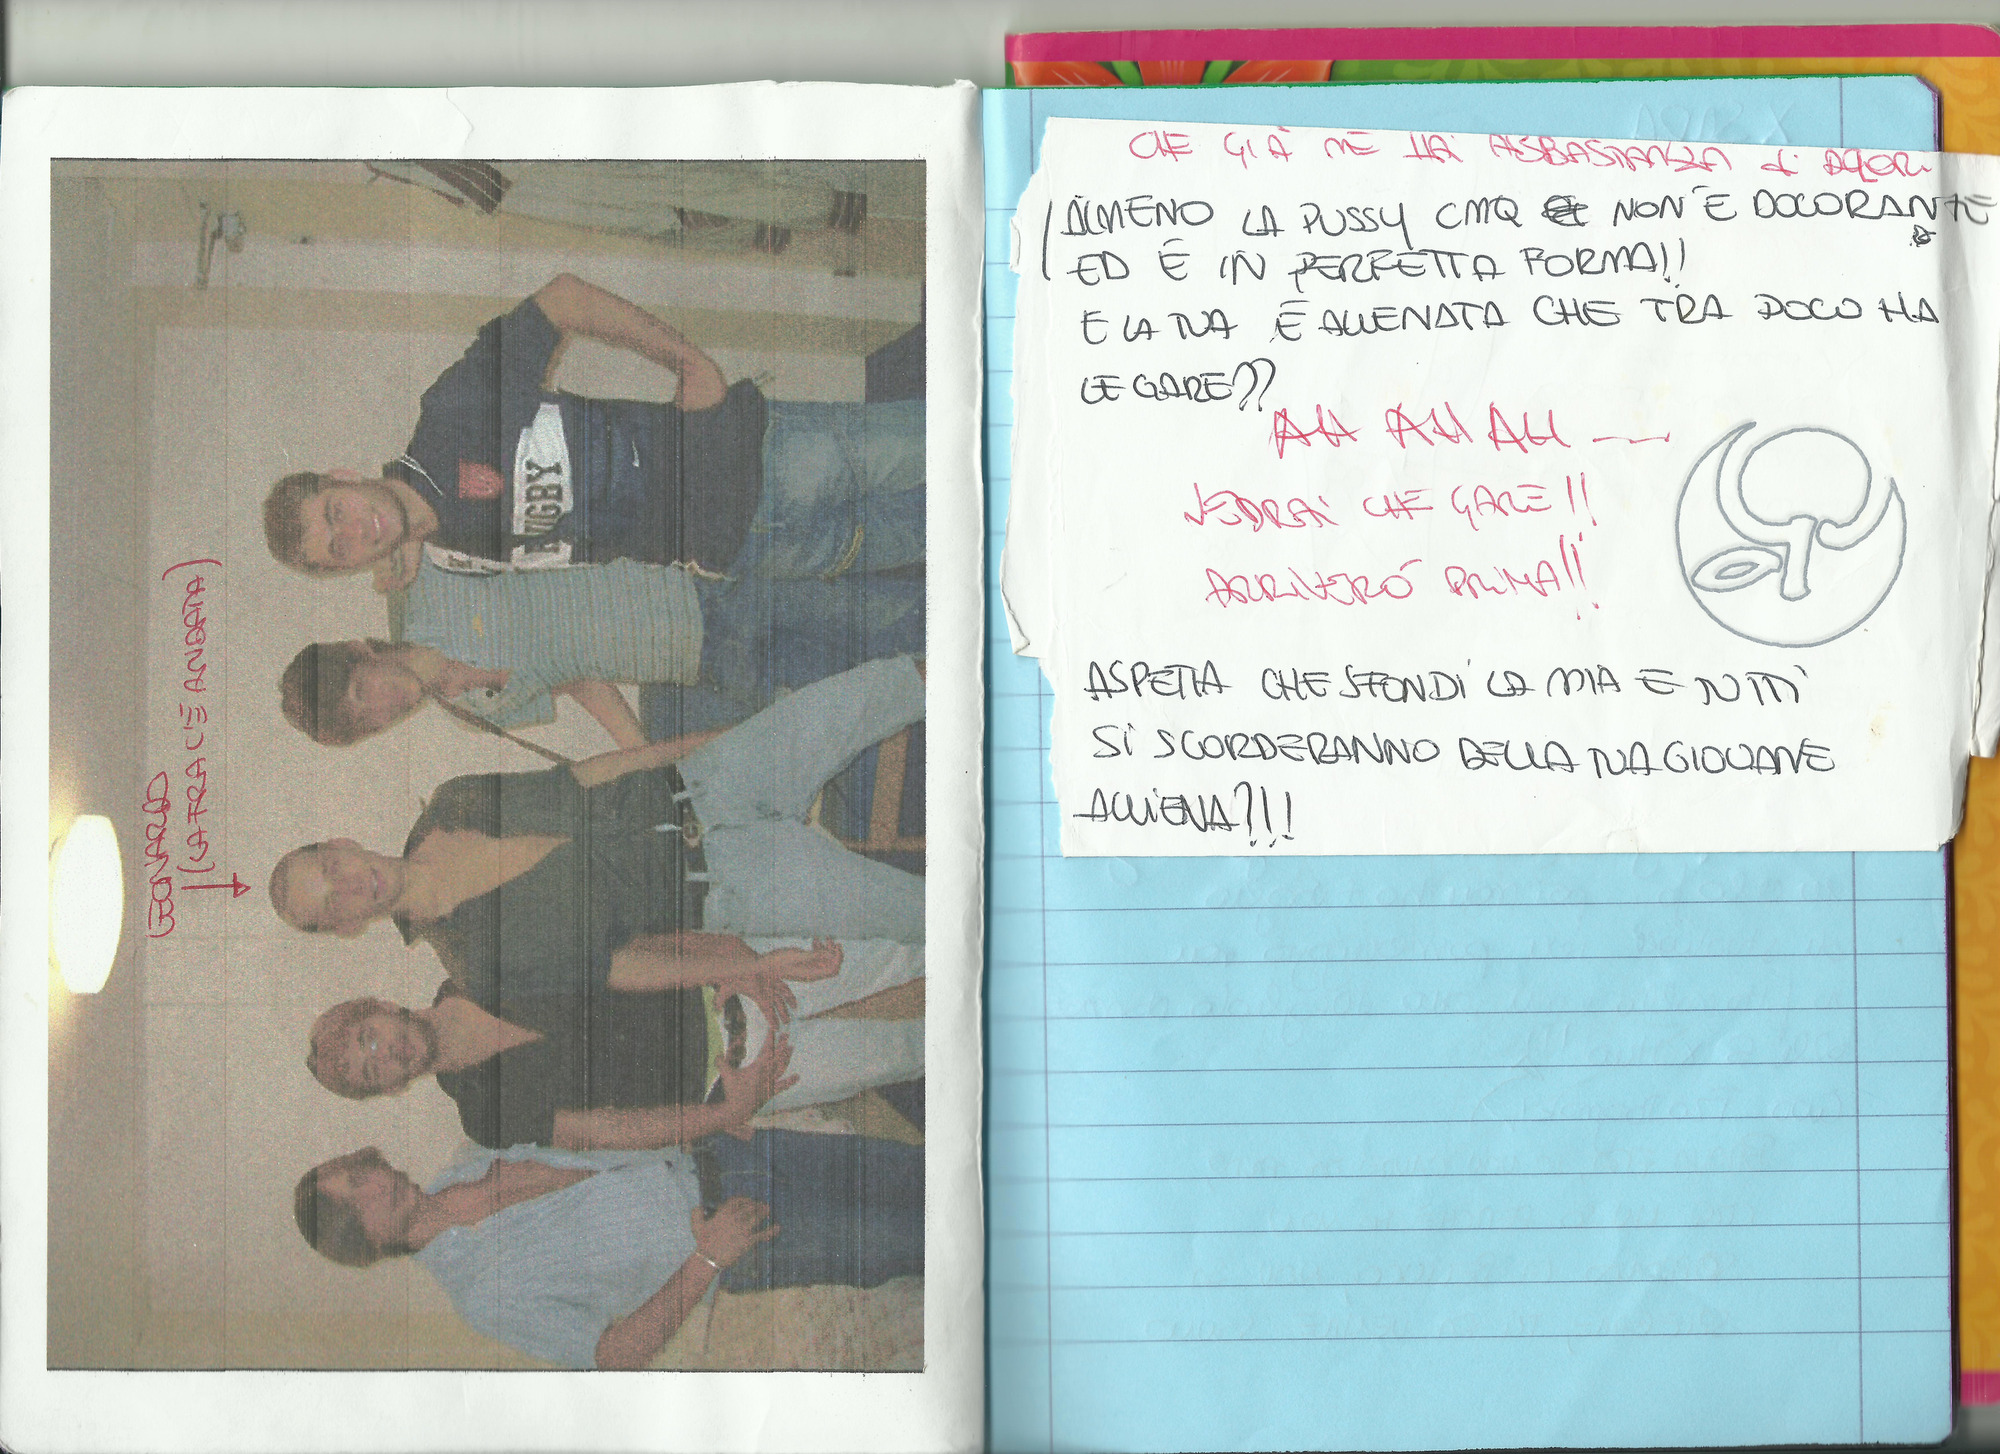 LEONARDO
(LA FRA C'È ANDATA)
RUGBY
CHE GIÀ NE HA ABBASTANZA di
ALMENO LA PUSSY CMQ NON È DOLORANTE
ED È IN PERFETTA FORMA!!
E LA TUA È ALLENATA CHE TRA POCO HA
LE GARE??
AH AH AH
VEDRAI CHE GARE!!
ARRIVERÓ PRIMA!!
ASPETTA CHE SFONDI LA MIA E TUTTI
SI SCORDERANNO DELLA TUA GIOVANE
ALLIEVA?!!